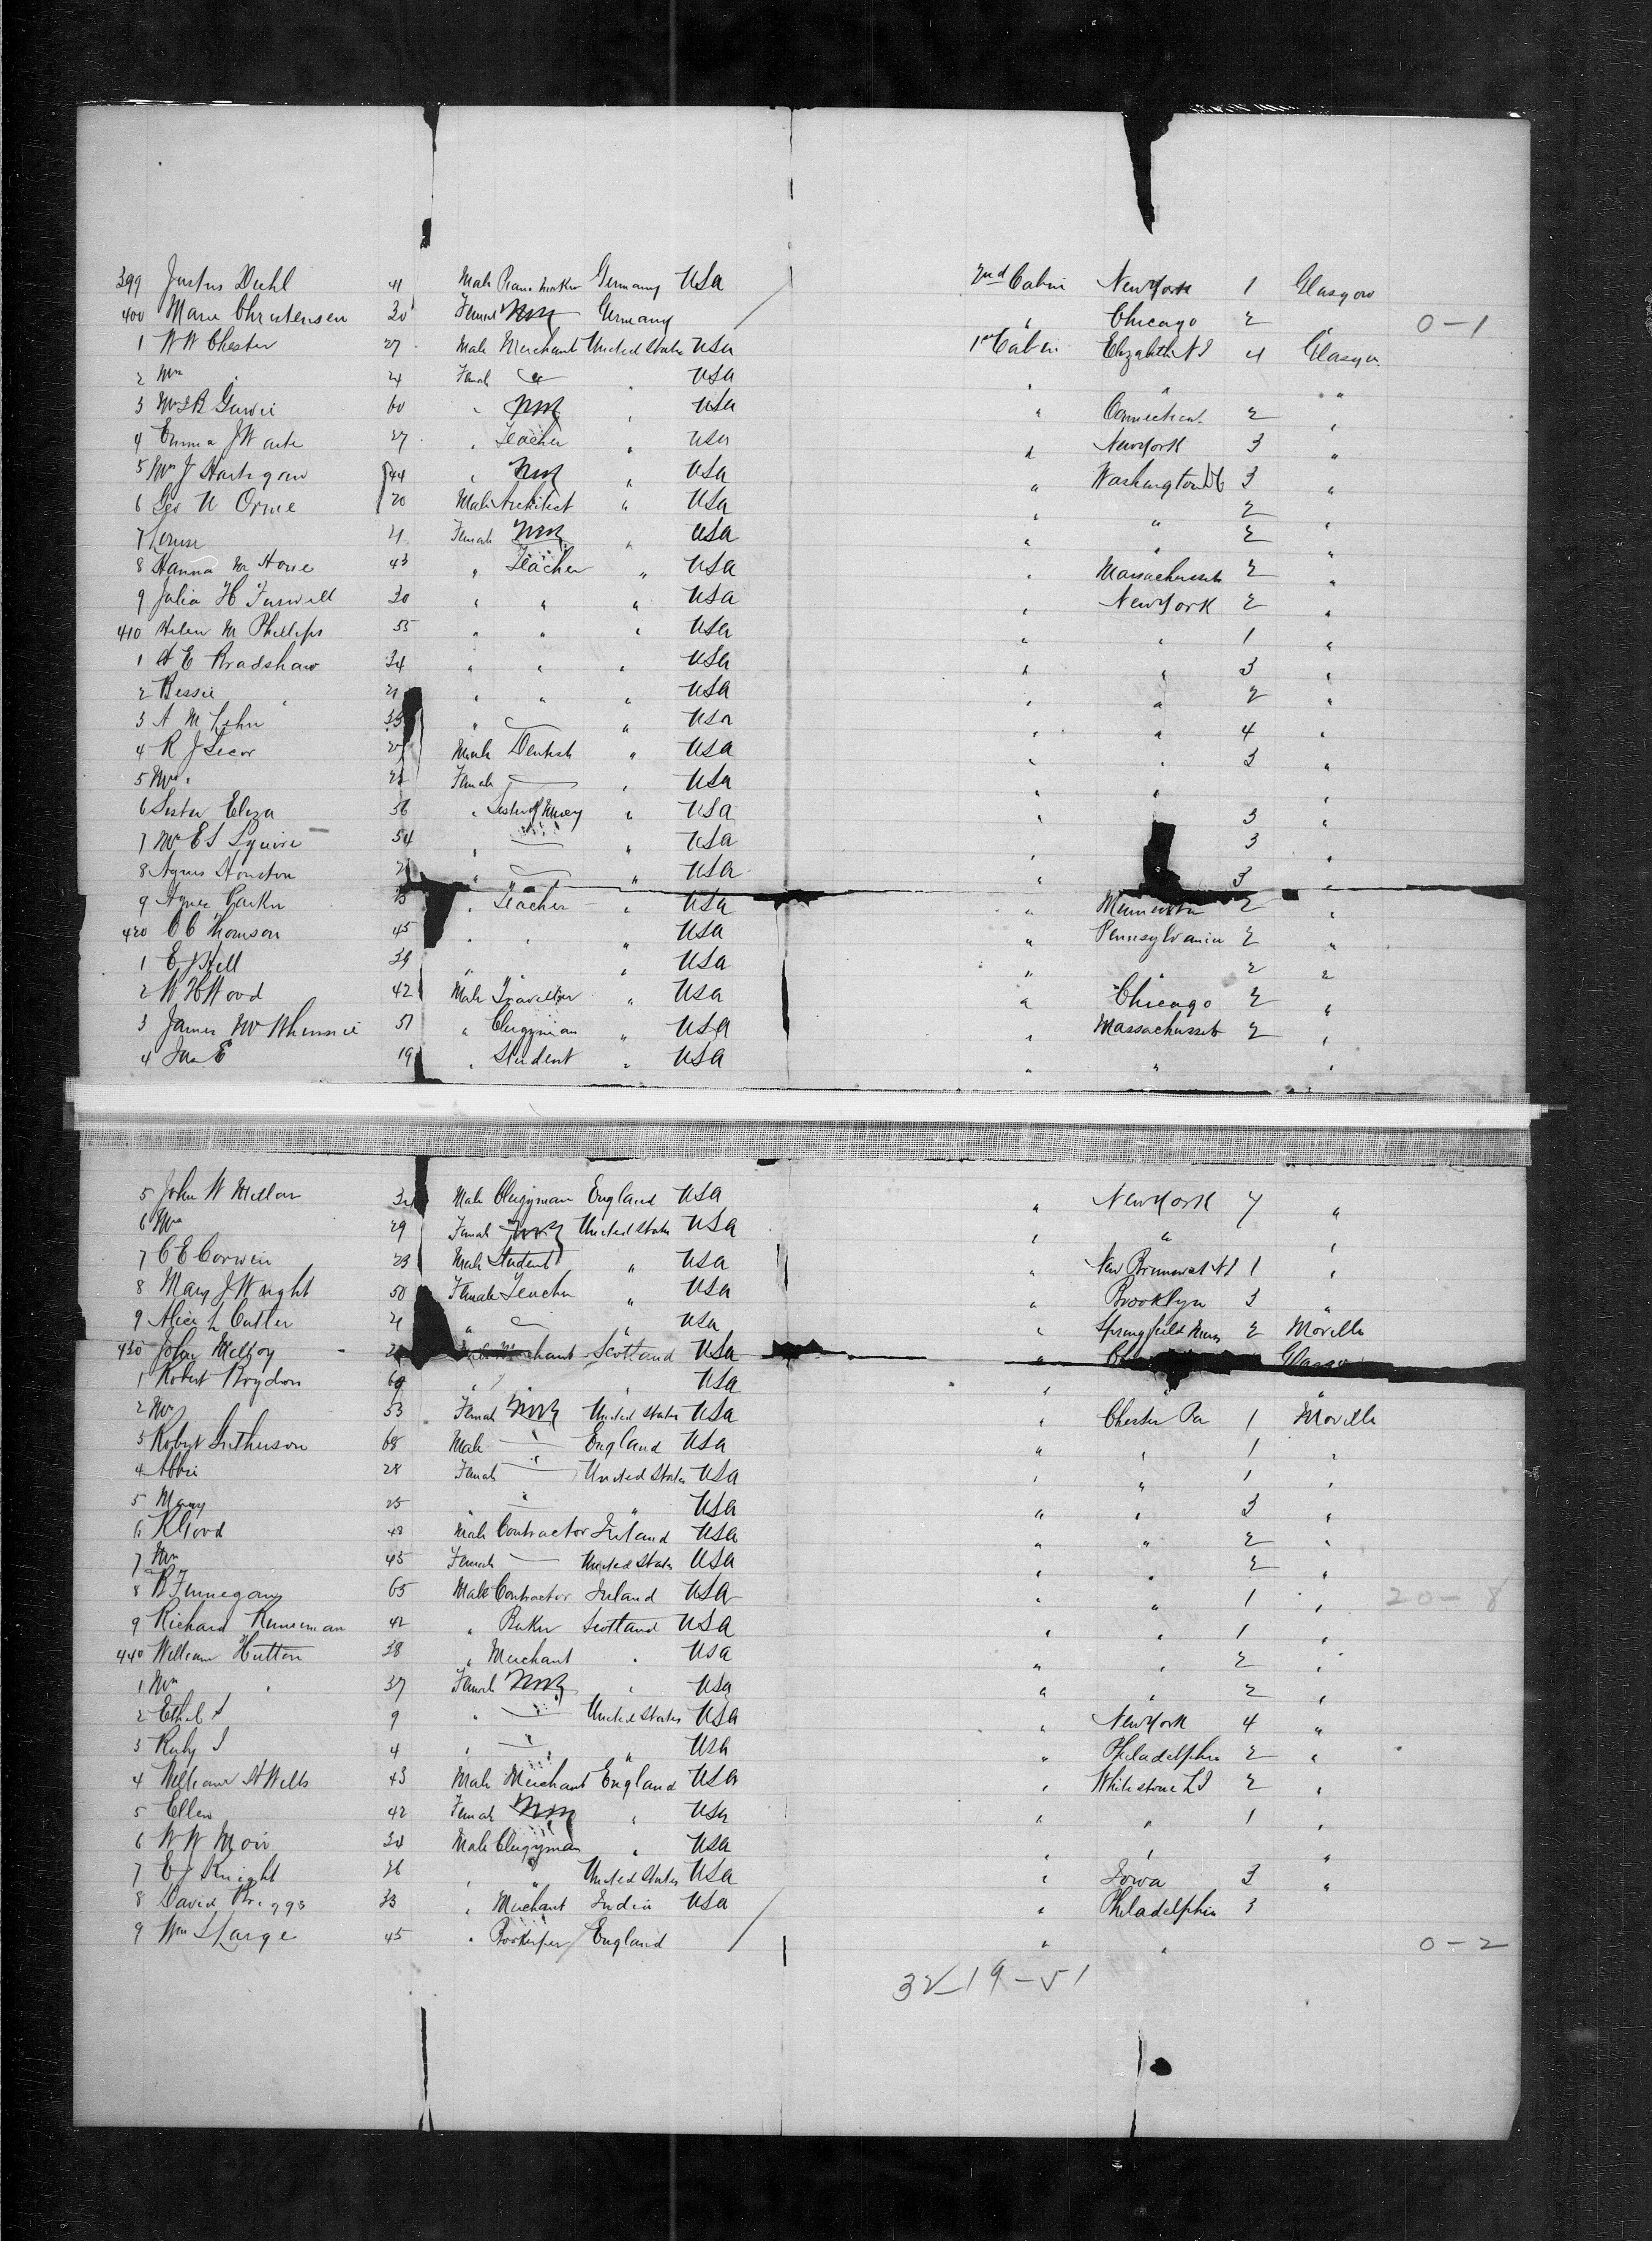 399 Justus Diehl 41 Male Piano Maker Germany USA 2nd Cabin New York 1 Glasgow
400 Marie Christensen 30 Female Germany " Chicago 2 " 0-1
1 W W Chester 27 Male Merchant United States USA 1st Cabin Elizabeth NJ 4 Glasgow
2 Mrs " 24 Female " " USA " " "
3 60 " " USA " Connecticut 2 "
4 Emma J 27 " Teacher " USA " New York 3 "
5 Mrs J Hartigan 44 " " USA " Washington DC 3 "
6 Geo N Orme 20 Male Architect " USA " " 2 "
7 Louise 21 Female " USA " " 2 "
8 Hanna M 43 " Teacher " USA " Massachusset 2 "
9 Julia H 30 " " " USA " New York 2 "
410 Helen M Phillips 55 " " " USA " " 1 "
1 A E Bradshaw 34 " " " USA " " 3 "
2 Bessie " 21 " " " USA " " 2 "
3 A M " " USA " " 4 "
4 R J Secor Male Dentist " USA " " 3 "
5 Mrs " Female " USA " " "
6 Sister Eliza 36 " Sister of Mercy " USA " 3 "
7 Mrs E S Squire 54 " " USA " 3 "
8 Agnes Houston " " USA " 3 "
9 Agnes Parker " Teacher " USA " 2 "
420 C C Thomson 45 " " " USA " Pennsylvania 2 "
1 E J Hill 39 " " " USA " " 2 "
2 W H Wood 42 Male Traveller " USA " Chicago 2 "
3 James Mc 51 " Clergyman " USA " Massachussets 2 "
4 19 " Student " USA " " "
5 John W Millar Male Clergyman England USA " New York 7 "
6 Mrs 29 Female United States USA " " "
7 C E Corwin 23 Male Student " USA " New Brunswick NJ 1 "
8 Mary J Wright 50 Female Teacher " USA " Brooklyn 3 "
9 Alice L Cutler 21 " " USA " Springfield Mass 2 Moville
430 John Merchant Scotland USA " Glasgow
1 Robert Roydon 69 " " " USA " " "
2 Mrs 53 Female United States USA " Chester Pa 1 Moville
3 Robert 68 Male England USA " " 1 "
4 Abbie 28 Female United States USA " " 1 "
5 Mary 25 " " USA " " 3 "
6 K Good 48 Male Contractor Ireland USA " " 2 "
7 Mrs 45 Female United States USA " " 2 "
8 B Finnegan 65 Male Contractor Ireland USA " " 1 " 20-8
9 Richard Runseman 42 " Baker Scotland USA " " 1 "
440 William Hutton 38 " Merchant " USA " " 2 "
1 Mrs " 37 Female " USA " " 2 "
2 Ethel S 9 " United States USA " New York 4 "
3 Ruby S 4 " " USA " Philadelphia 2 "
4 William H Wills 43 Male Merchant England USA " Whitestone LI 2 "
5 Ellen 42 Female " USA " " 1 "
6 W W Moir 34 Male Clergyman " USA " " "
7 E J Knight 26 " " United States USA " Iowa 3 "
8 David Briggs 33 " Merchant India USA " Philadelphia 3
9 Wm S Large 45 " Bookeeper England " " 0-2
32-19-51